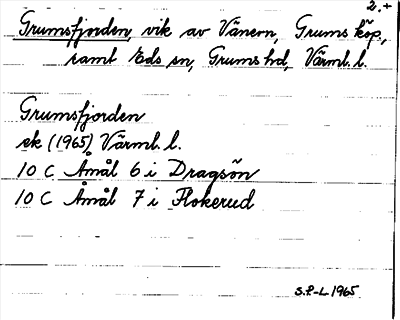 2.+
Grumsfjorden, vik av Vänern, Grums köp.,
samt Eds sn, Grums hd, Värml. l.
Grumsfjorden
ek (1965) Värml. l.
10 C Åmål 6 i Dragsön
10 C Åmål 7 i Flokerud
S.P-L 1965